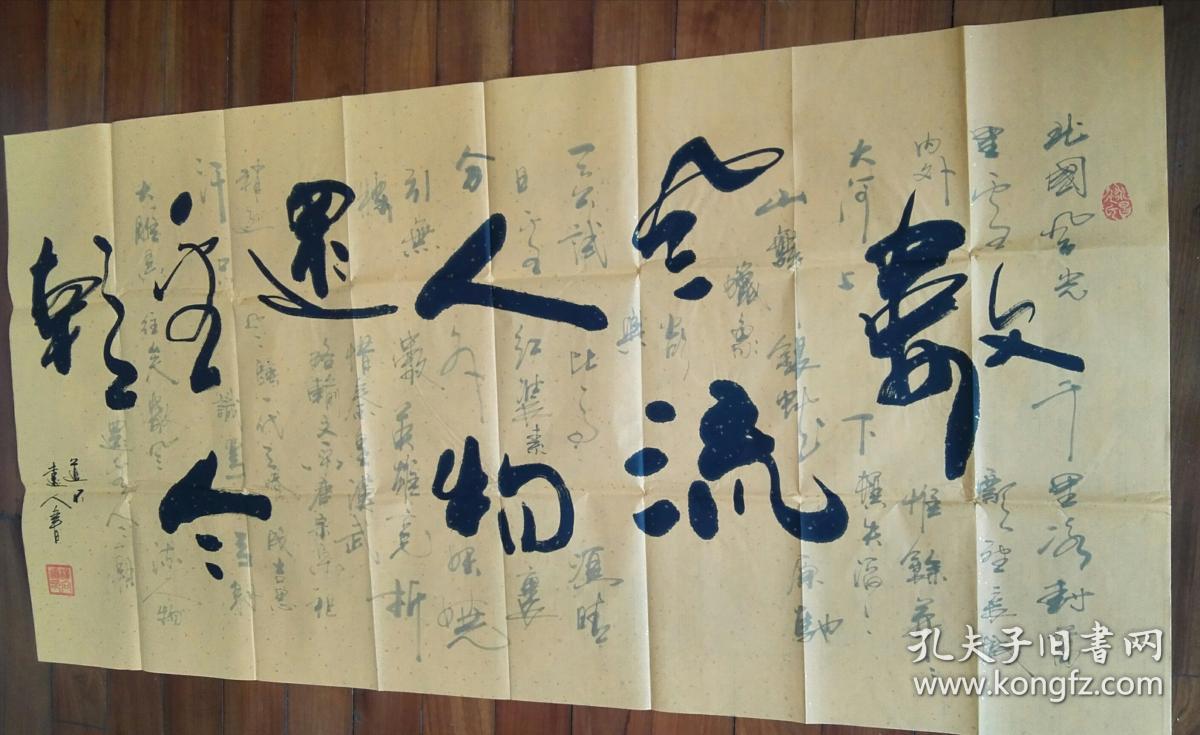 數
風流
人物
還
看今
朝
北國風光 千里冰封萬
里雪飄 望長城
內外 惟餘莽莽
大河上下 頓失滔滔
山舞銀蛇 原馳
蠟象 欲與
天公試比高 須晴
日 看紅裝素裹
分外妖嬈
引無數英雄競折
腰 惜秦皇漢武
略輸文采 唐宗宋祖
稍遜風騷 一代天驕成吉思
汗 只識彎弓射
大雕 俱往矣 數風流人物
還看今朝
孔夫子旧书网
www.kongfz.com